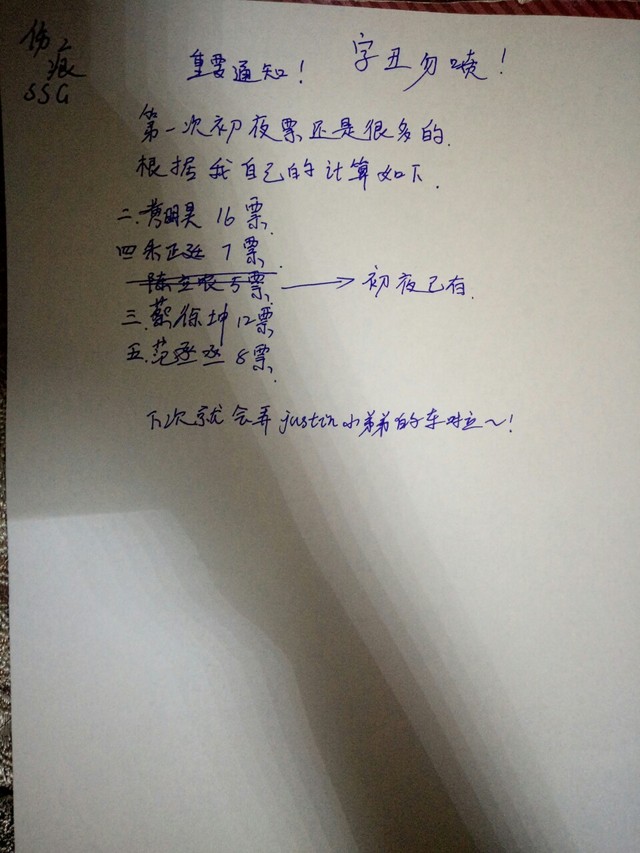 伤
痕
SSG
重要通知！ 字丑勿喷！
第一次初夜票还是很多的.
根据我自己的计算如下.
二.黄明昊 16票.
四 朱正廷 7票.
5票. → 初夜已有.
三.蔡徐坤 12票
五.范丞丞 8票.
下次就会弄justin小弟弟的车啦～！